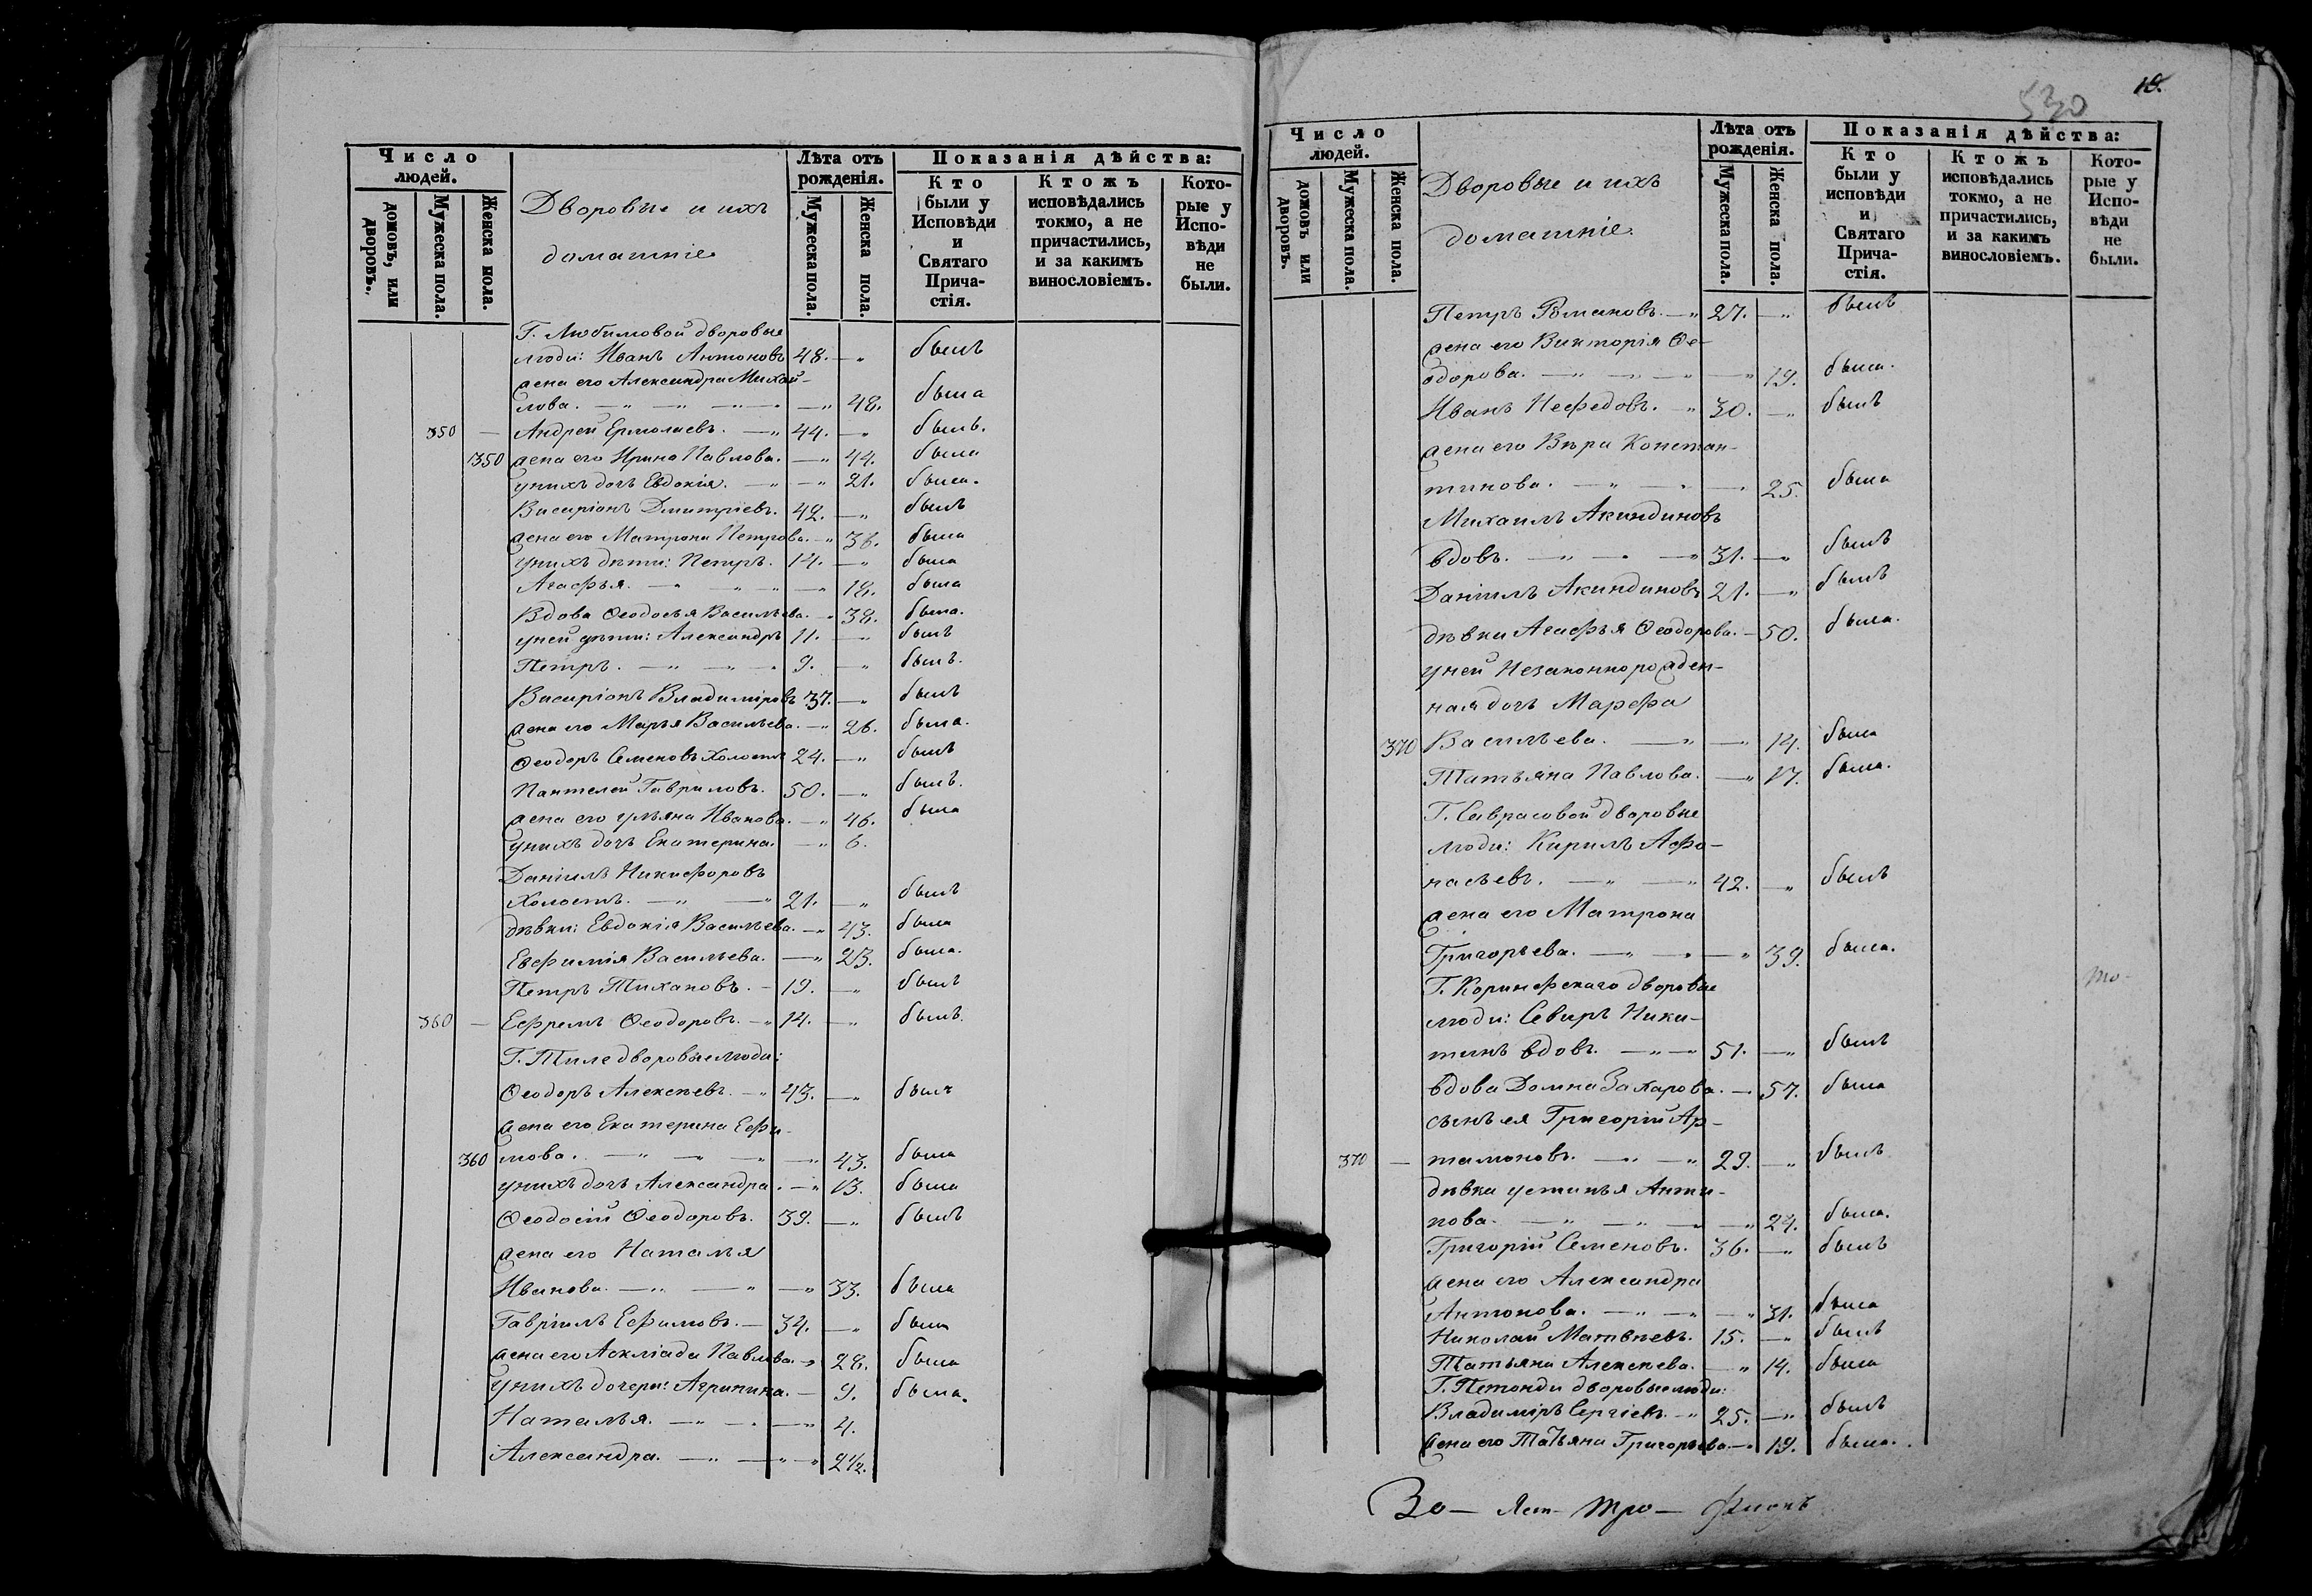 Число людей.
домовъ, или дворовъ.
Мужеска пола.
Женска пола.
Дворовые и ихъ
домашніе
Лѣта отъ рожденія.
Мужеска пола.
Женска пола.
Показанія дѣйства:
Кто были у Исповѣди и Святаго Прича-стія.
Ктожъ исповѣдались токмо, а не причастились, и за какимъ винословіемъ.
Кото-рые у Испо-вѣди не были.
Г. Любимовой дворовые
люди: Иванъ Антоновъ 48. — „ былъ
жена его Александра Михай-
лова. — „ — „ — „ 48. была
350 — Андрей Ермолаевъ. — „ 44. — „ былъ.
350 жена его Ирина Павлова. — „ 44. была
у нихъ дочь Евдокія. — „ — „ 21. была.
Висаріонъ Дмитріевъ. 42. — „ былъ
жена его Матрона Петрова. — „ 36. была
у нихъ дѣти: Петръ. 14. — „ была
Агафья. — „ — „ 18. была
Вдова Ѳеодосья Васильева. — 38. была.
у ней дѣти: Александръ 11. — „ былъ
Петръ. — „ — „ 9. — „ былъ.
Висаріонъ Владиміровъ 37. — „ былъ
жена его Марья Васильева. — „ 26. была.
Ѳеодоръ Семеновъ холостъ 24. — „ былъ
Пантелей Гавриловъ. 50. — „ былъ.
жена его Ульяна Иванова. — „ 46. была
у нихъ дочь Екатерина. — „ 6.
Даніилъ Никифоровъ
холостъ. — „ — „ 21. — „ былъ
дѣвки: Евдокія Васильева. — „ 43. была
Евфимія Васильева. — „ 23. была.
Петръ Тихановъ. — 19. — „ былъ
360 — Ефремъ Ѳеодоровъ. — „ 14. — „ былъ.
Г. Тиле дворовые люди:
Ѳеодоръ Алексѣевъ. — „ 43. — „ былъ
жена его Екатерина Ефи-
360 мова. — „ — „ — „ 43. была
у нихъ дочь Александра. — „ 13. была
Ѳеодосій Ѳеодоровъ. 39. — „ былъ
жена его Наталья
Иванова. — „ — „ — „ 33. была
Гавріилъ Ефимовъ. — 34. — „ была
жена его Асклiада Павлова. — „ 28. была
у нихъ дочери: Агрипина. — 9. была.
Наталья. — „ — „ 4.
Александра. — „ — „ 2½.
530
10.
Число людей.
домовъ или дворовъ.
Мужеска пола.
Женска пола.
Дворовые и ихъ
домашніе.
Лѣта отъ рожденія.
Мужеска пола.
Женска пола.
Показанія дѣйства:
Кто были у исповѣди и Святаго Прича-стія.
Ктожъ исповѣдались токмо, а не причастились, и за какимъ винословіемъ.
Кото-рые у Испо-вѣди не были.
Петръ Романовъ. — „ 27. — „ былъ
жена его Викторія Ѳе-
одорова. — „ — „ — „ 19. была.
Иванъ Нефедовъ. — „ 30. — „ былъ
жена его Вѣра Констан-
тинова. — „ — „ — 25. была
Михаилъ Акиндиновъ
вдовъ. — „ — „ — „ 31. — „ былъ
Даніилъ Акиндиновъ 21. — „ былъ
дѣвка Агафья Ѳеодорова. — 50. была.
у ней Незаконнорожден-
ная дочь Марфа
370 Васильева. — „ — „ 14. была
Татьяна Павлова. — „ 17. была.
Г. Саврасовой дворовые
люди: Кирилъ Афа-
насьевъ. — „ — „ 42. — „ былъ
жена его Матрона
Григорьева. — „ — „ — „ 39. была.
Г. Коринфскаго дворовые
люди: Северъ Ники-
тинъ вдовъ. — „ — „ 51. — „ былъ
вдова Домна Захарова. — 57. была
сынъ ея Григорій Ар-
370 — тамоновъ. — „ — „ 29. — „ былъ
дѣвка Устинья Анти-
пова. — „ — „ — „ 24. была.
Григорій Семеновъ. 36. — „ былъ
жена его Александра
Антонова. — „ — „ — „ 31. была
Николай Матвѣевъ. 15. — „ былъ
Татьяна Алексѣева. — „ 14. была
Г. Петонди дворовые люди:
Владиміръ Сергіевъ. — „ 25. — „ былъ
жена его Татьяна Григорьева. — 19. была.
то-
За — Яст- Тро — Фионъ